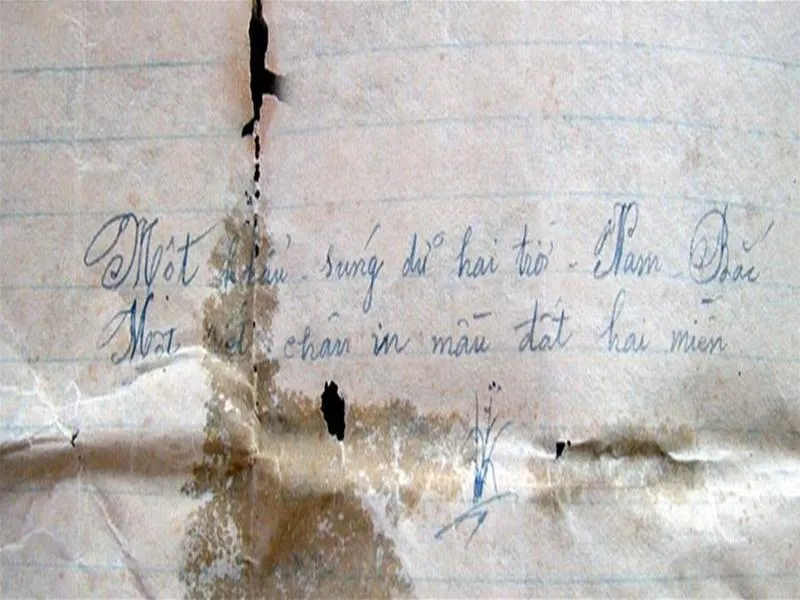 Một khẩu súng dữ hai trờ - Nam Bắc
Một vết chân in mầu đất hai miền